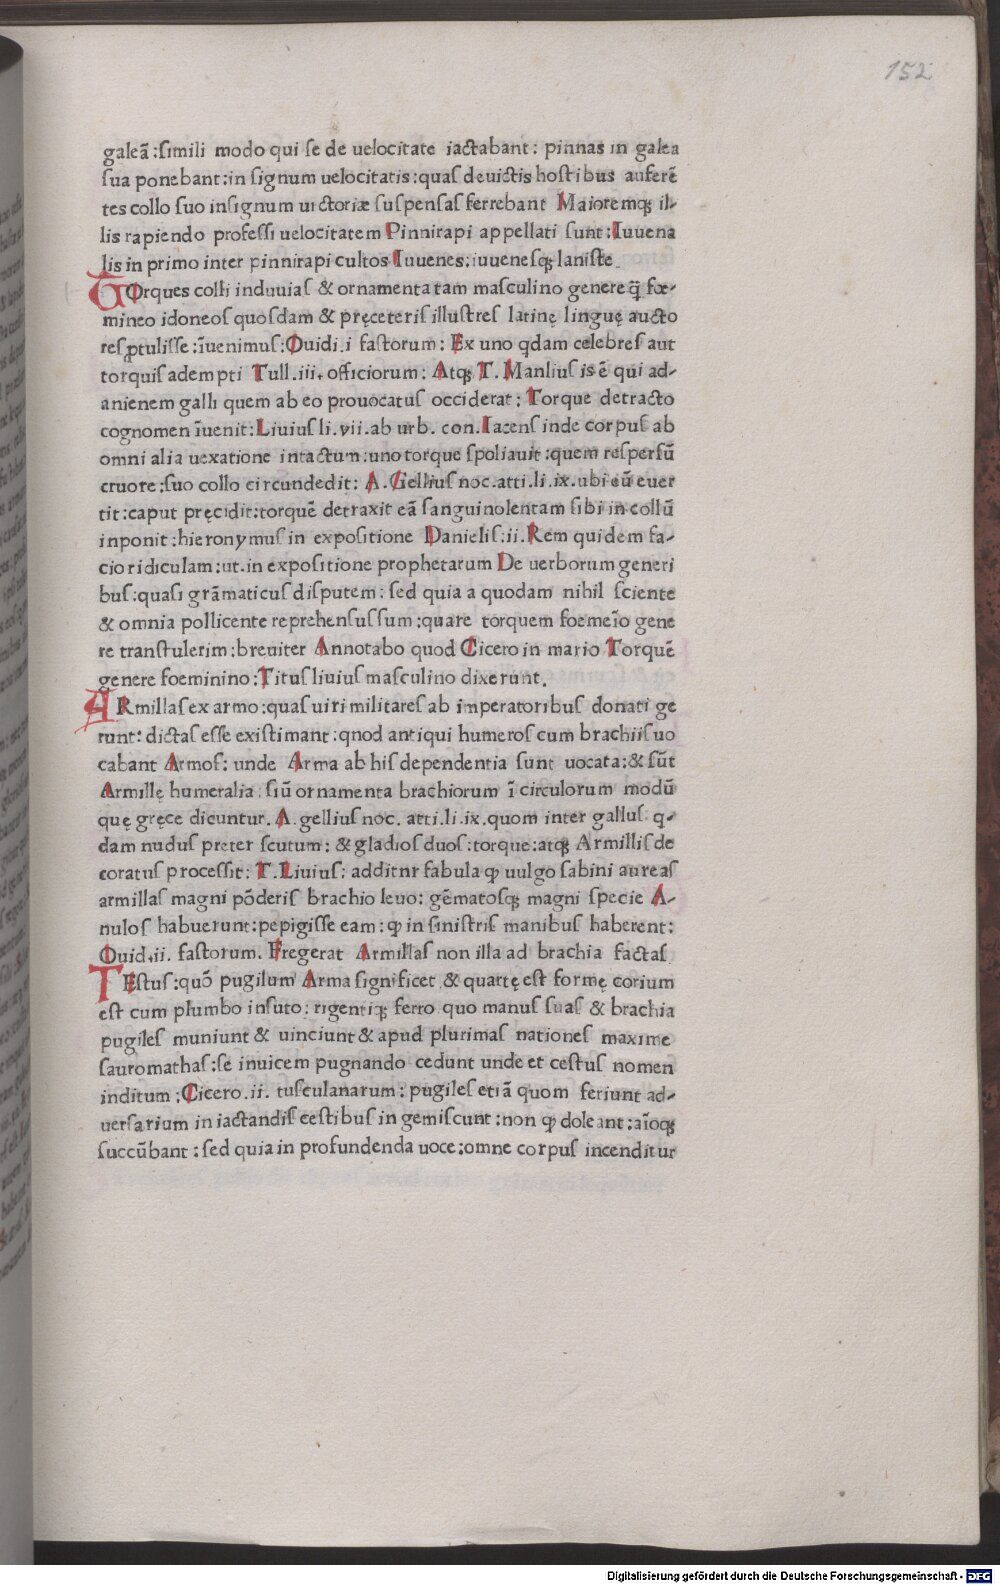 152
galeā:simili modo qui se de uelocitate iactabant: pinnas in galea
sua ponebant:in signum uelocitatis:quas deuictis hostibus auferē
tes collo suo insignum uictoriæ suspensas ferrebant Maioremqꝫ il-
lis rapiendo professi uelocitatem Pinnirapi appellati sunt:Iuuena
lis in primo inter pinnirapi cultos Iuuenes:iuuenesqꝫ laniste
TOrques colli induuias & ornamenta tam masculino genere q̄ fœ-
mineo idoneos quosdam & pręceteris illustres latinę linguę aucto
res ꝓtulisse:īuenimus:Ouidi.i fastorum: Ex uno qdam celebres aut
torquis adempti Tull.iii. officiorum: Atqꝫ T. Manlius is ē qui ad-
anienem galli quem ab eo prouocatus occiderat: Torque detracto
cognomen īuenit:Liuius li.vii.ab urb. con.Iacens inde corpus ab
omni alia uexatione intactum:uno torque spoliauit:quem respersū
cruore:suo collo circundedit: A.Gellius noc.atti.li.ix.ubi eū euer
tit:caput pręcidit:torquē detraxit eā sanguinolentam sibi in collū
inponit:hieronymus in expositione Danielis:ii.Rem quidem fa-
cio ridiculam:ut.in expositione prophetarum De uerborum generi
bus:quasi grāmaticus disputem: sed quia a quodam nihil sciente
& omnia pollicente reprehensus sum:quare torquem foemeīo gene
re transtulerim:breuiter Annotabo quod Cicero in mario Torquē
genere foeminino:Titus liuius masculino dixerunt.
ARmillas ex armo:quas uiri militares ab imperatoribus donati ge
runt: dictas esse existimant:qnod antiqui humeros cum brachiis uo
cabant Armos: unde Arma ab his dependentia sunt uocata:& sūt
Armillę humeralia siū ornamenta brachiorum ī circulorum modū
quę gręce dicuntur. A. gellius noc. atti.li.ix.quom inter gallus q-
dam nudus preter scutum: & gladios duos:torque:atqꝫ Armillis de
coratus processit: T.Liuius: additnr fabula ꝙ uulgo sabini aureas
armillas magni pōderis brachio leuo: gēmatosqꝫ magni specie A-
nulos habuerunt:pepigisse eam:ꝙ in sinistris manibus haberent:
Ouid.ii. fastorum. Fregerat Armillas non illa ad brachia factas
TEstus:quō pugilum Arma significet & quartę est formę corium
est cum plumbo insuto: rigentiqꝫ ferro quo manus suas & brachia
pugiles muniunt & uinciunt & apud plurimas nationes maxime
sauromathas:se inuicem pugnando cedunt unde et cestus nomen
inditum:Cicero.ii. tusculanarum: pugiles etiā quom feriunt ad-
uersarium in iactandis cestibus in gemiscunt:non ꝙ doleant:aīoqꝫ
succūbant:sed quia in profundenda uoce:omne corpus incenditur
Digitalisierung gefördert durch die Deutsche Forschungsgemeinschaft - DFG